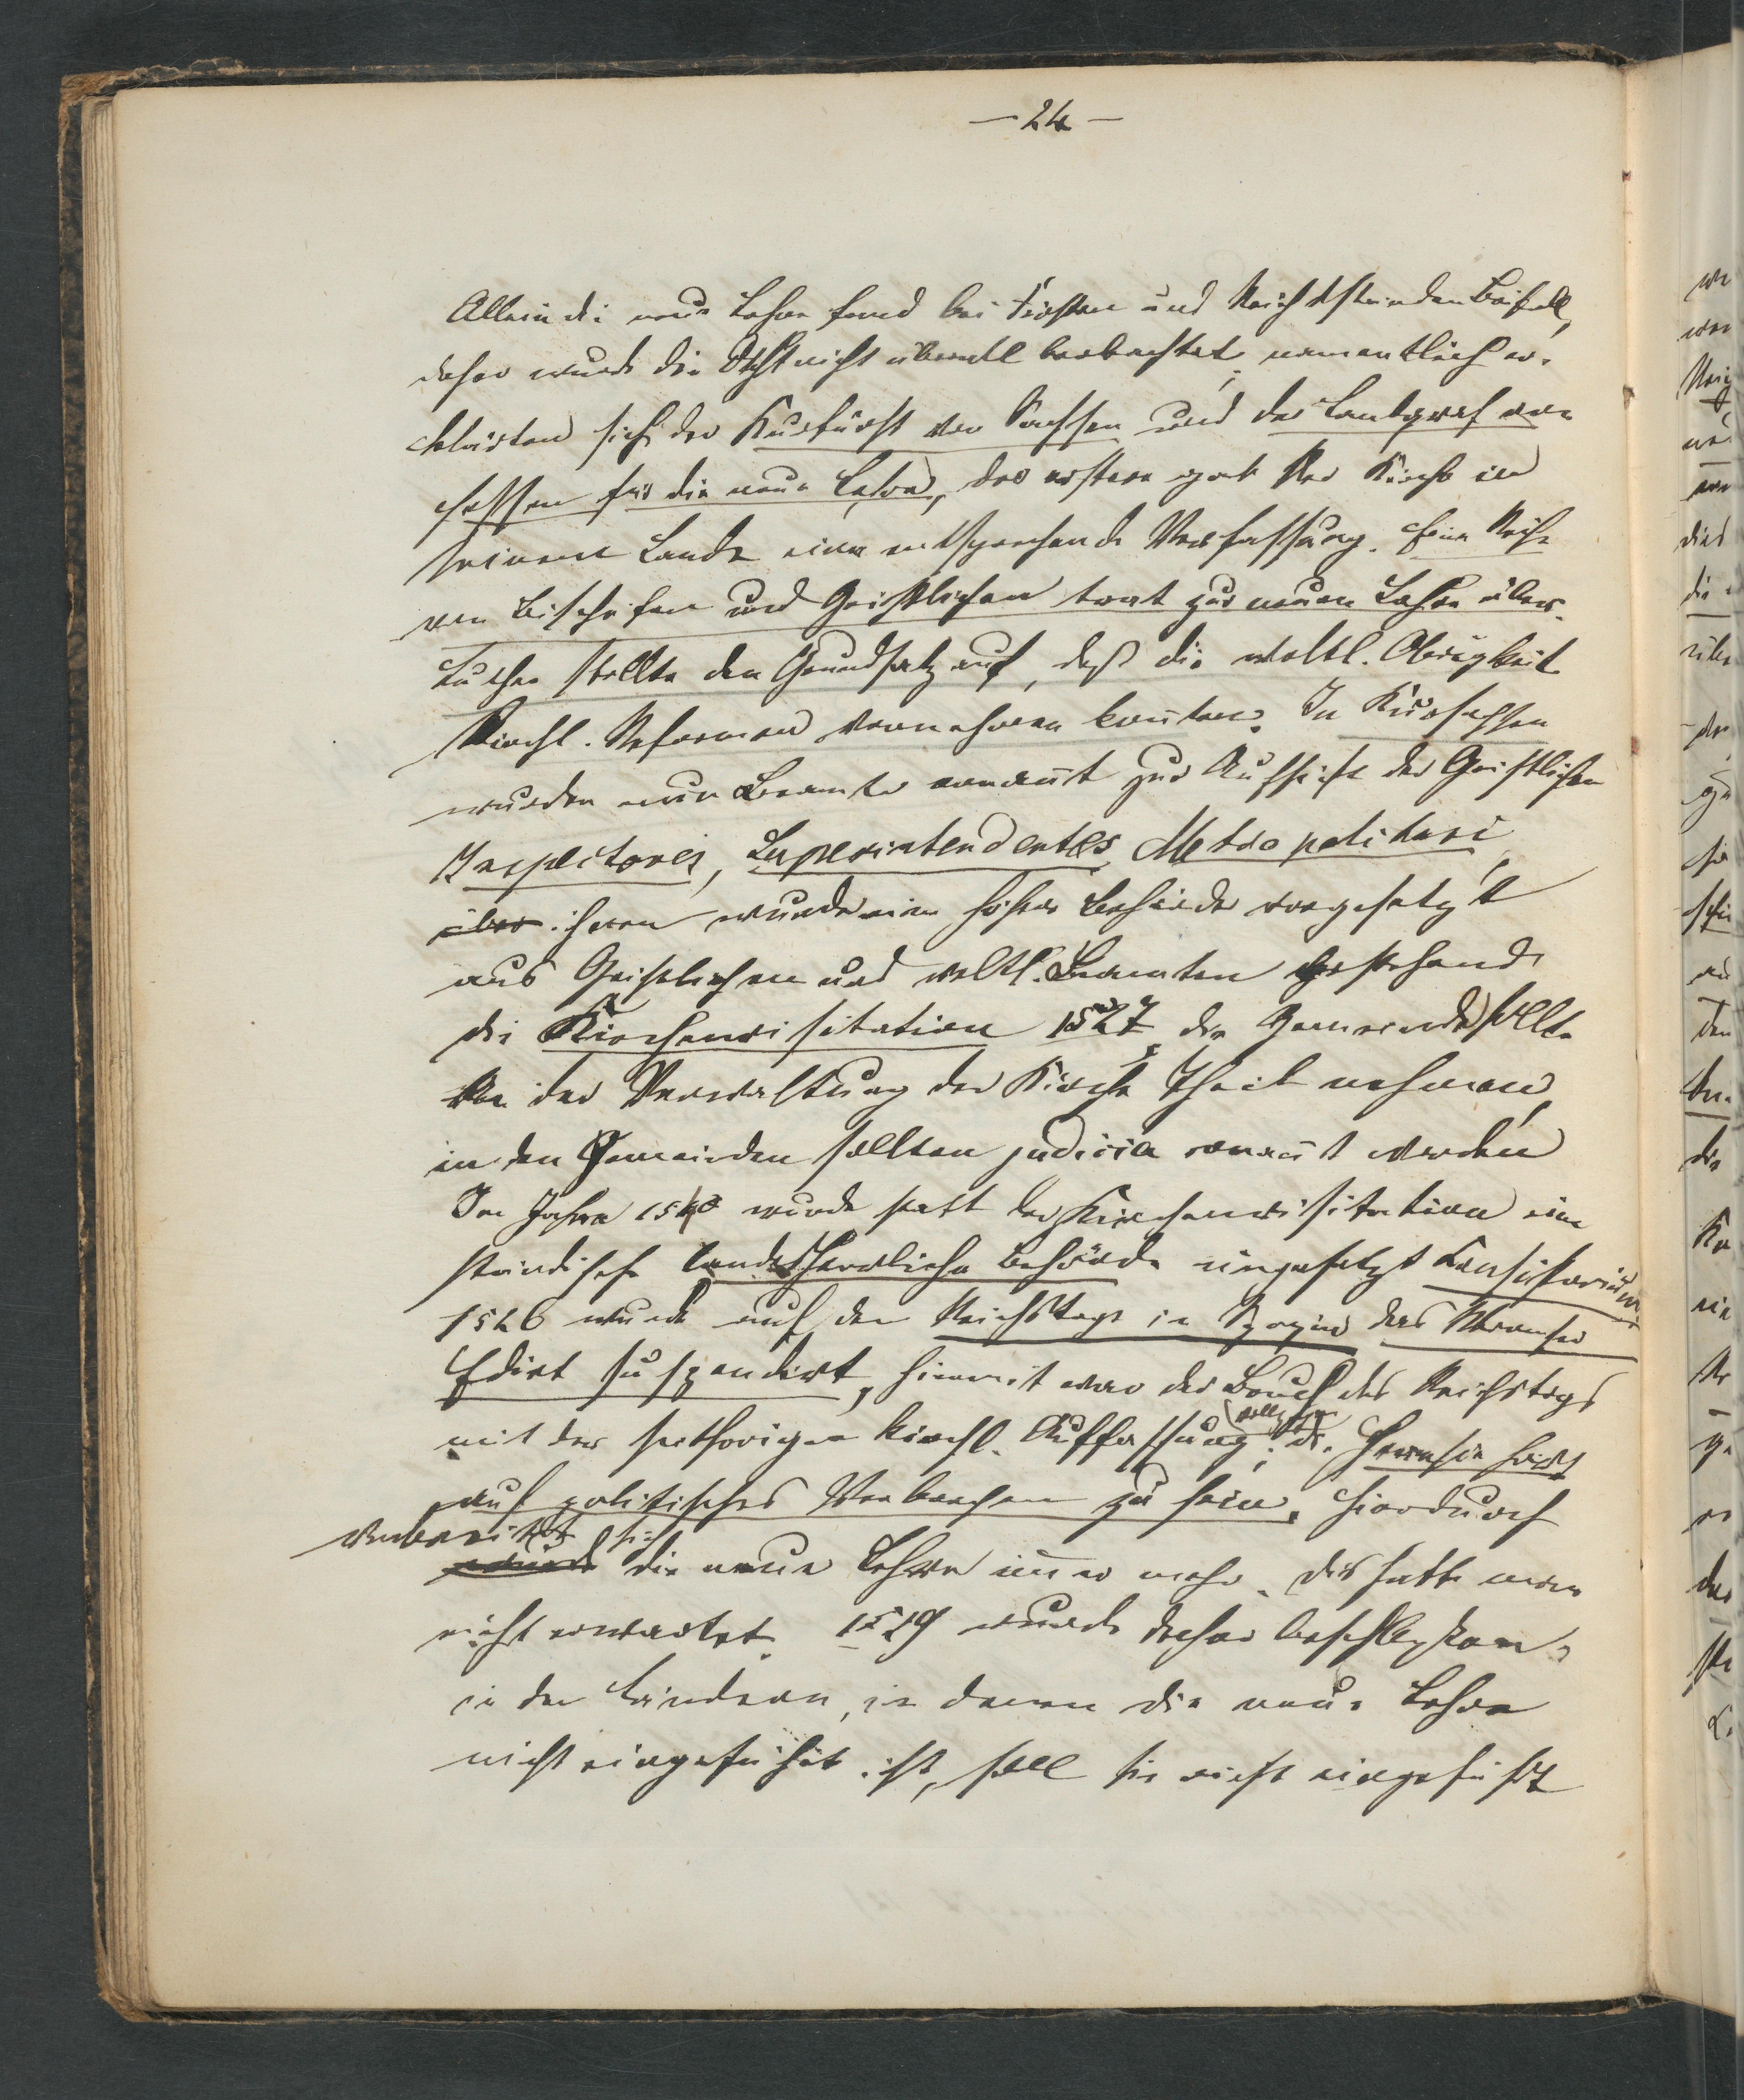 — 24 —
Allein die neue Lehre fand bei Fürsten und Reichsständen Beifall,
daher wurde die Acht nicht überall beobachtet, namentlich er-
klärten sich der Kurfürst von Sachsen und der Landgraf von
Hessen für die neue Lehre, der erstere gab der Kirche in
seinem Lande eine entsprechende Verfassung. Eine Reihe
von Bischöfen und Geistlichen trat zur neuen Lehre über.
Luther stellte den Grundsatz auf, daß die weltl. Obrigkeit
kirchl. Reformen vornehmen könnten. In Kursachsen
wurden nun Beamte ernannt zur Aufsicht der Geistlichen
Inspectores, Superintendentes, Metropolitani,
über ihnen wurde eine höhere Behörde vorgesetzt
aus Geistlichen und weltl. Beamten bestehend,
die Kirchenvisitation 1527, die Gemeinde sollte
An der Verwaltung der Kirche Theil nehmen,
in den Gemeinden sollten judicia ernannt werden
Im Jahre 1540 wurde statt der Kirchenvisitation eine
ständische landesherrliche Behörde eingesetzt Consistorium
1526 wurde auf dem Reichstage in Speyer das Wormser
Edict suspendirt, hiermit war der Bruch des Reichstags
mit der seitherigen kirchl. Auffassung vollzogen; die Heresie hört
auf politisches Verbrechen zu sein. Hierdurch
verbreitet sich
wurde die neue Lehre immer mehr. dies hatte man
nicht erwartet. 1529 wurde daher beschlossen,
in den Ländern, in denen die neue Lehre
nicht eingeführt ist, soll sie nicht eingeführt